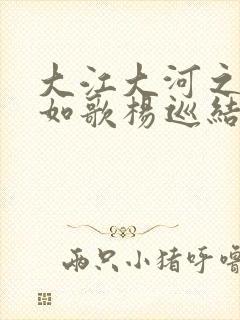 大江大河之
如歌杨巡结
两只小猪呼噜